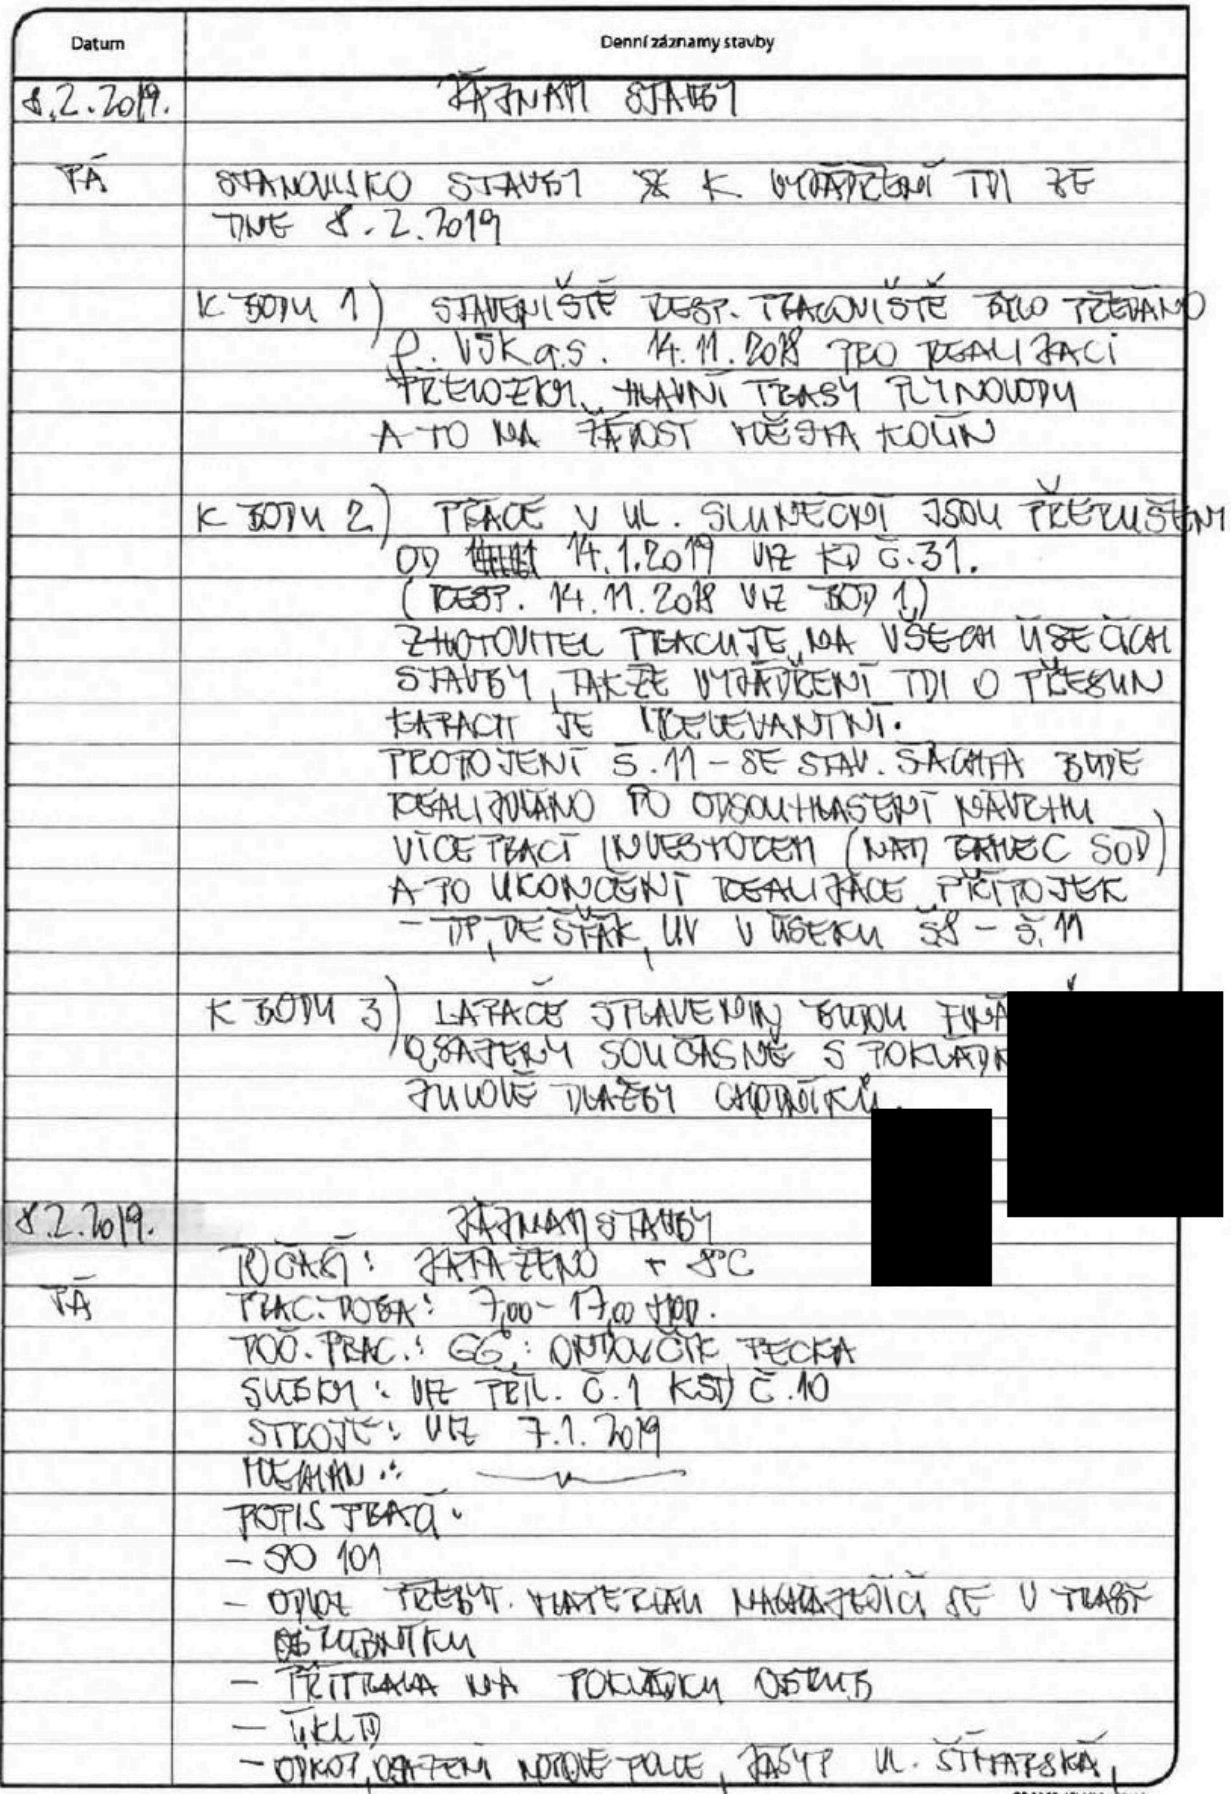 Datum
Denní záznamy stavby
8.2.2019.
ZÁZNAM STAVBY
PÁ
STANOVISKO STAVBY K VYJÁDŘENÍ TDI ZE
DNE 8.2.2019
K BODU 1) STAVENIŠTĚ RESP. PRACOVIŠTĚ BYLO PŘEDÁNO
f. VSK a.s. 14.11.2018 PRO REALIZACI
PŘELOŽKY HLAVNÍ TRASY PLYNOVODU
A TO NA ŽÁDOST MĚSTA KOLÍN
K BODU 2) PRÁCE V UL. SLUNEČNÍ JSOU PŘERUŠENY
OD 14.1.2019 VIZ KD Č.31.
(RESP. 14.11.2018 VIZ BOD 1)
ZHOTOVITEL PRACUJE NA VŠECH ÚSECÍCH
STAVBY, TAKŽE VYJÁDŘENÍ TDI O PŘESUN
KAPACIT JE IRELEVANTNÍ.
PROPOJENÍ Š.11 - SE STAV. ŠACHTA BUDE
REALIZOVÁNO PO ODSOUHLASENÍ NÁVRHU
VÍCEPRACÍ INVESTOREM (NAD RÁMEC SOD)
A PO UKONČENÍ REALIZACE PŘÍPOJEK
- DP, DEŠŤÁK, UV V ÚSEKU Š8 - Š.11
K BODU 3) LAPAČE SPLAVENIN BUDOU FINÁ
OSAZENY SOUČASNĚ S POKLÁDK
ŽULOVÉ DLAŽBY CHODNÍKŮ.
8.2.2019.
ZÁZNAM STAVBY
POČASÍ: ZATAŽENO + 8°C
PÁ
PRAC. DOBA: 7,00 - 17,00 HOD.
POČ. PRAC.: GG: ONDOVČÍK, PECKA
SUBDOD: VIZ PŘÍL. Č.1 KSD Č.10
STROJE: VIZ 7.1.2019
MECHAN.:
POPIS PRACÍ:
- SO 101
- ODVOZ PŘEBYT. MATERIÁLU NACHÁZEJÍCÍ SE V TRASE
OBRUBNÍKU
- PŘÍPRAVA NA POKLÁDKU OBRUB
- ÚKLID
- ODKOP, OSAZENÍ, ZÁSYP UL. ŠTÍTARSKÁ,